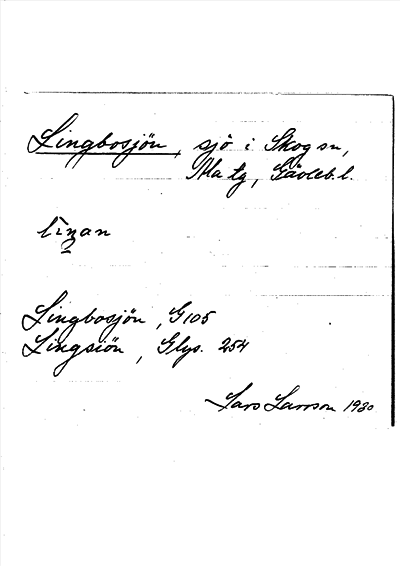 Lingbosjön, sjö i Skog sn,
Ma tg, Gävleb. l.
lìŋan
Lingbosjön, G 105
Lingsiön, Glys. 254
Lars Larsson 1930